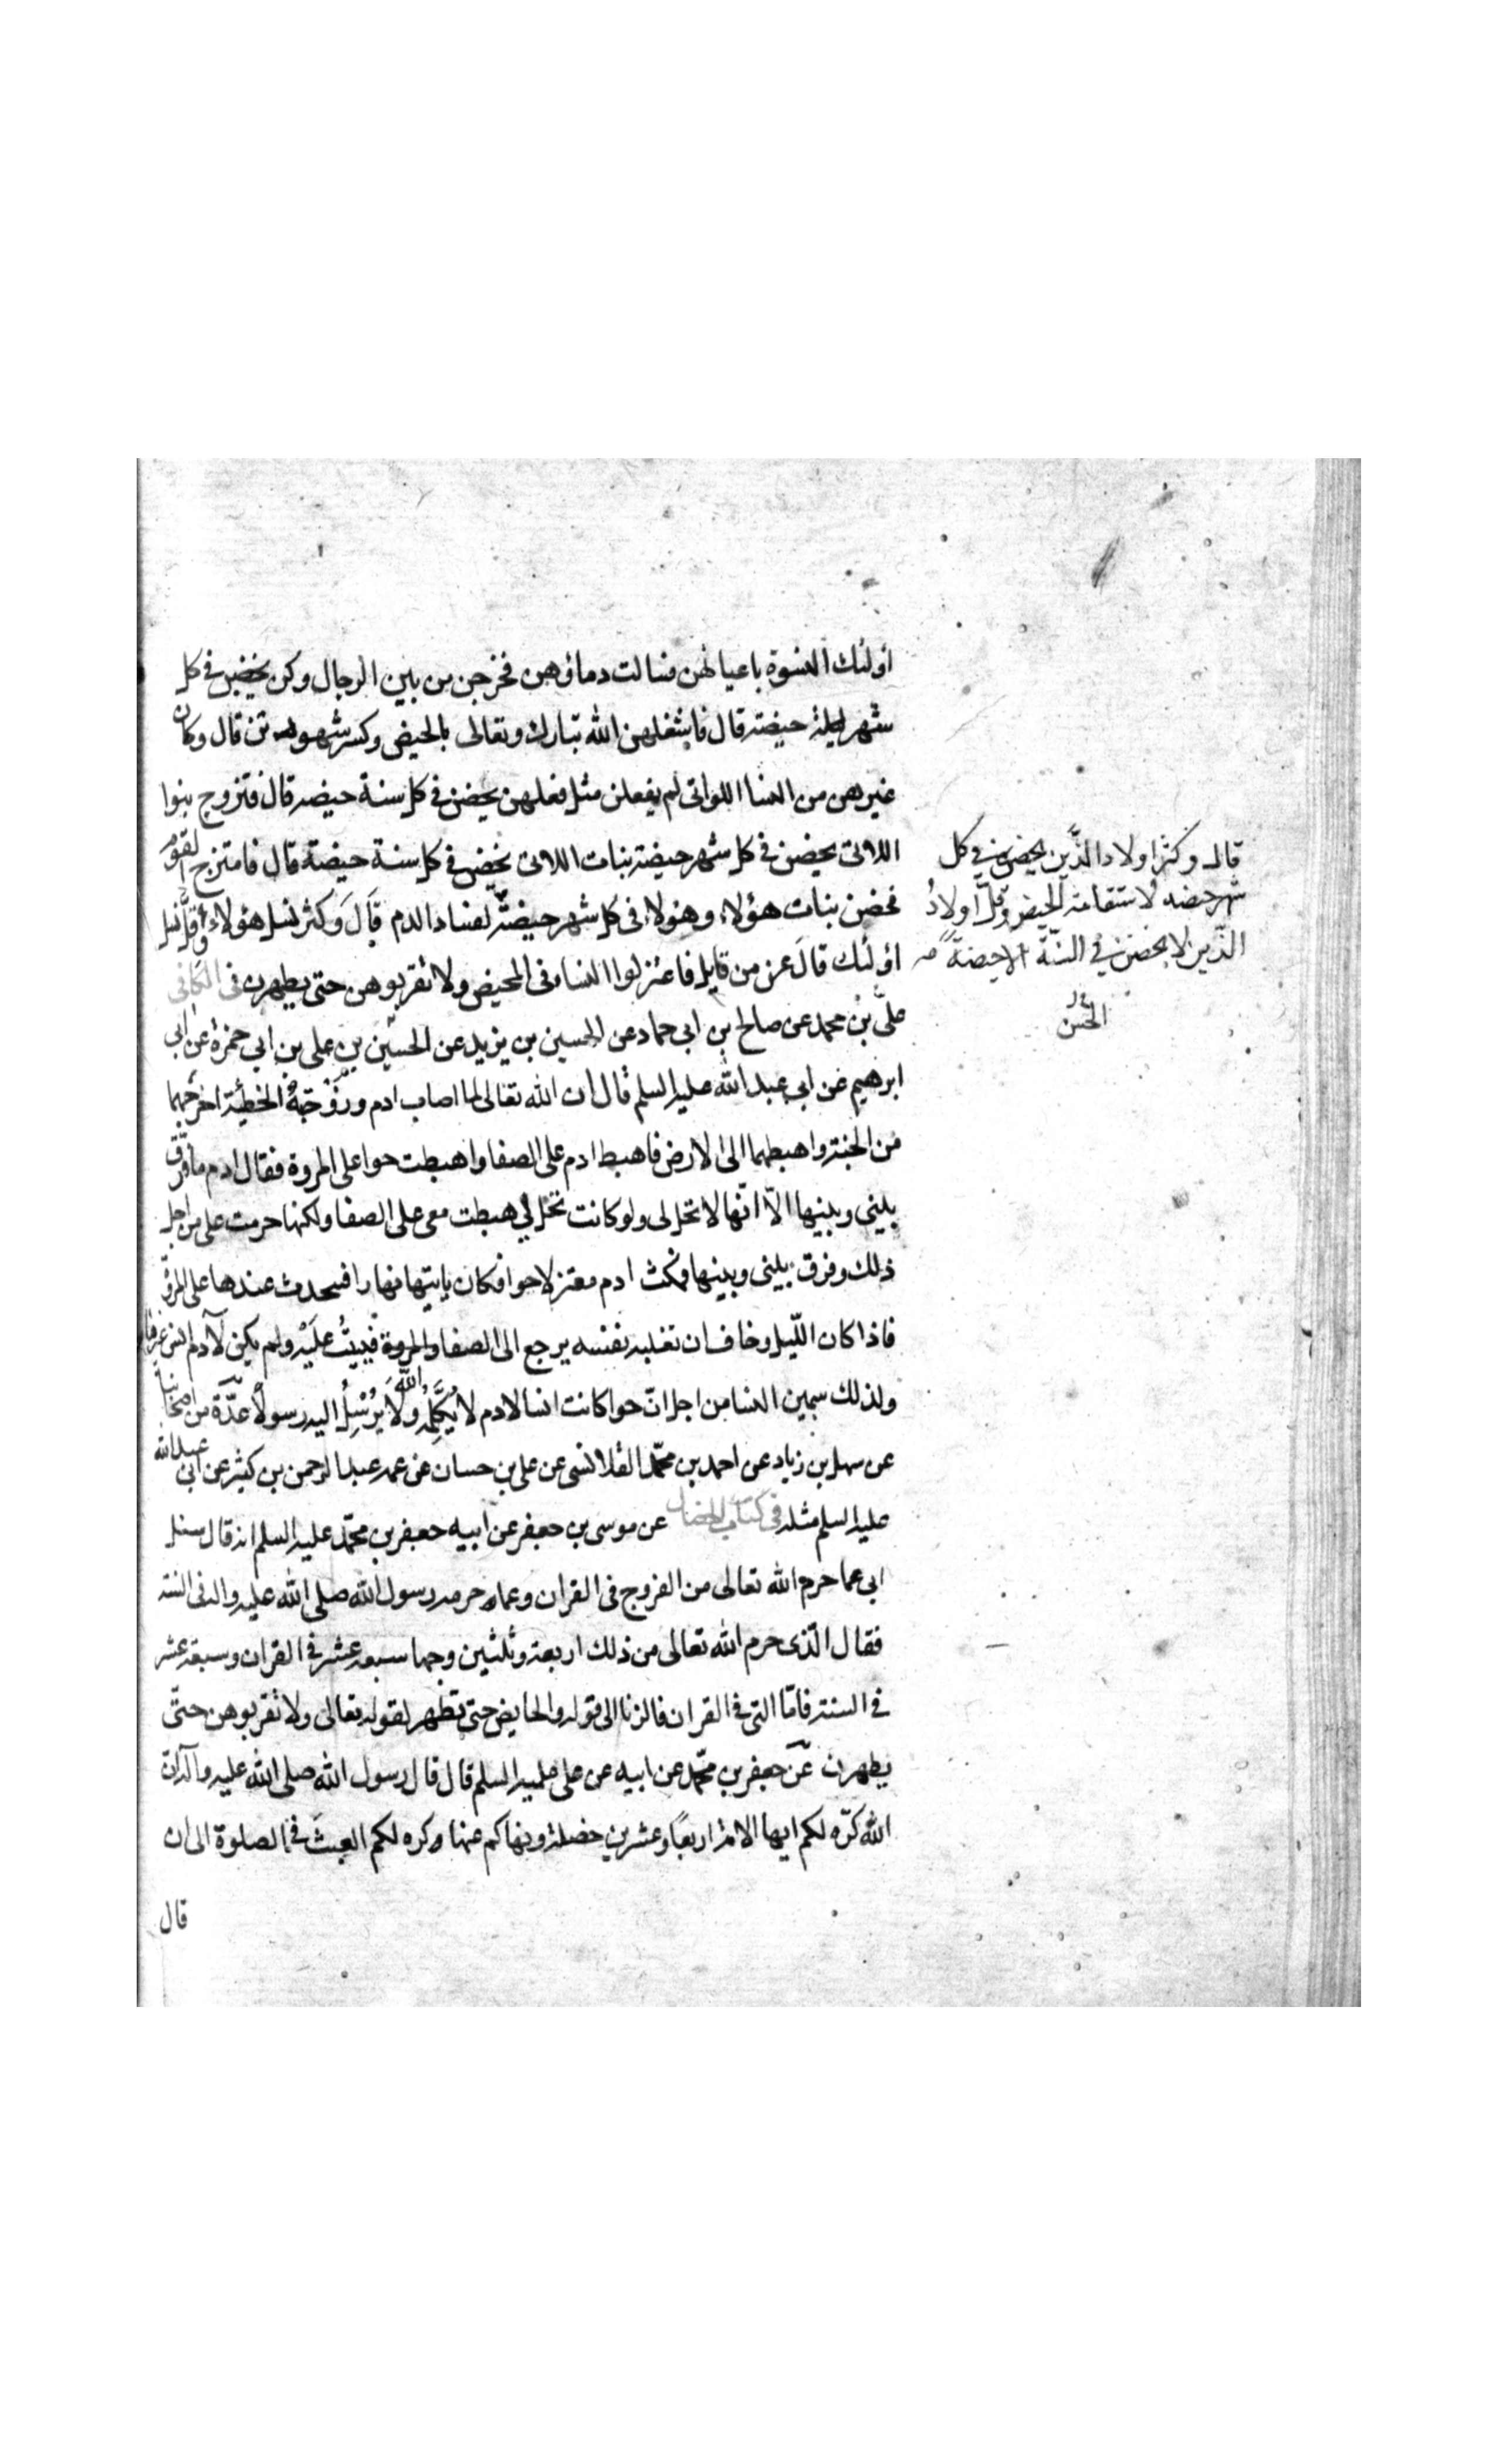 أولئك النسوة باعيانهن فسالت دماؤهن فخرجن من بين الرجال وكن يحضن فى كل
شهر حيضة قال فاشغلهن الله تبارك وتعالى بالحيض وكسر شهوتهن قال وكان
غيرهن من النسا اللواتى لم يفعلن مثل فعلهن يحضن فى كل سنة حيضه قال فتزوج بنوا
اللاتى يحضن فى كل شهر حيضة بنات اللاتى يحضن فى كل سنة حيضة قال فامتزج القوم
فحضن بنات هؤلاء وهؤلاء فى كل شهر حيضة لفساد الدم قال وكثر نسل هؤلاء وقل نسل
أولئك قال عز من قايل فاعتزلوا النساء فى المحيض ولا تقربوهن حتى يطهرن فى الكافى
على بن محمد عن صالح بن ابى حماد عن الحسين بن يزيد عن الحسن بن على بن ابى حمزة عن ابى
ابرهيم عن ابى عبد الله عليه السلم قال ان الله تعالى لما اصاب ادم وزوجته الخطيئة اخرجهما
من الجنة واهبطهما الى الارض فاهبط ادم على الصفا واهبطت حوا على المروة فقال ادم ما فرق
بينى وبينها الّا انّها لا تحل لى ولو كانت تحل لى هبطت معى على الصفا ولكنها حرمت على من اجل
ذلك وفرق بينى وبينها فمكث ادم معتزلا حوا فكان ياتيها نهارا فيتحدث عندها على المروة
فاذا كان اللّيل وخاف ان تغلبه نفسه يرجع الى الصفا والمروة فيبيت عليه ولم يكن لآدم انس غيرها
ولذلك سمين النسا من اجل انّ حوا كانت انسا لادم لا يكلّمه الله ولا يرسل اليه رسولاً عدّة من اصحابنا
عن سهل بن زياد عن احمد بن محمّد القلانسى عن على بن حسان عن عمه عبد الرحمن بن كثير عن ابى عبد الله
عليه السلم مثله فى كتاب الخصال عن موسى بن جعفر عن ابيه جعفر بن محمّد عليه السلم انه قال سئل
ابى عما حرم الله تعالى من الفروج فى القران وعما حرمه رسول الله صلى الله عليه واله فى السنة
فقال الّذى حرم الله تعالى من ذلك اربعة وثلثين وجها سبعة عشر فى القران وسبعة عشر
فى السنة فامّا التى فى القران فالزنا الى قوله والحايض حتى تطهر لقوله تعالى ولا تقربوهن حتّى
يطهرن عن جعفر بن محمّد عن ابيه عن على عليه السلم قال قال رسول الله صلى الله عليه وآله ان
الله كرّه لكم ايها الامة اربعاً وعشرين خصلة ونهاكم عنها وكره لكم العبث فى الصلوة الى ان
قال
قال وكثر اولاد الّذين يحضن فى كل
شهر حيضه لاستقامة الحيض وقلّ اولاد
الّذين لا يحضن فى السنّة الا حيضة